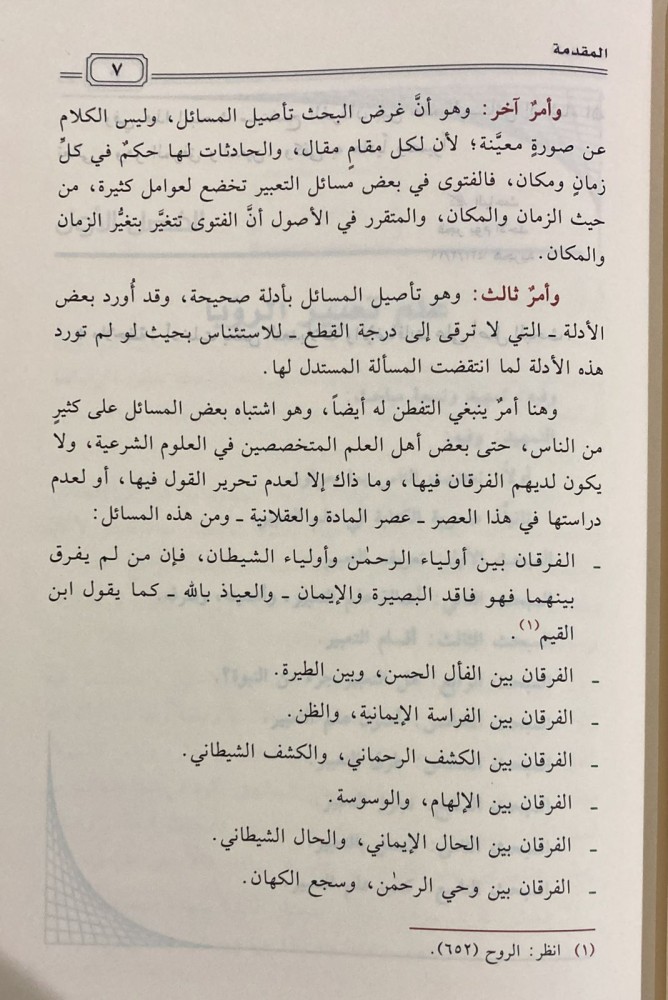 المقدمة
٧
وأمرٌ آخر: وهو أنَّ غرض البحث تأصيل المسائل، وليس الكلام
عن صورةٍ معيَّنة؛ لأن لكل مقامٍ مقال، والحادثات لها حكمٌ في كلِّ
زمانٍ ومكان، فالفتوى في بعض مسائل التعبير تخضع لعوامل كثيرة، من
حيث الزمان والمكان، والمتقرر في الأصول أنَّ الفتوى تتغيَّر بتغيُّر الزمان
والمكان.
وأمرٌ ثالث: وهو تأصيل المسائل بأدلة صحيحة، وقد أُورد بعض
الأدلة ـ التي لا ترقى إلى درجة القطع ـ للاستئناس بحيث لو لم تورد
هذه الأدلة لما انتقضت المسألة المستدل لها.
وهنا أمرٌ ينبغي التفطن له أيضاً، وهو اشتباه بعض المسائل على كثيرٍ
من الناس، حتى بعض أهل العلم المتخصصين في العلوم الشرعية، ولا
يكون لديهم الفرقان فيها، وما ذاك إلا لعدم تحرير القول فيها، أو لعدم
دراستها في هذا العصر ـ عصر المادة والعقلانية ـ ومن هذه المسائل:
ـ الفرقان بين أولياء الرحمٰن وأولياء الشيطان، فإن من لم يفرق
بينهما فهو فاقد البصيرة والإيمان ـ والعياذ بالله ـ كما يقول ابن
القيم(١).
ـ الفرقان بين الفأل الحسن، وبين الطيرة.
ـ الفرقان بين الفراسة الإيمانية، والظن.
ـ الفرقان بين الكشف الرحماني، والكشف الشيطاني.
ـ الفرقان بين الإلهام، والوسوسة.
ـ الفرقان بين الحال الإيماني، والحال الشيطاني.
ـ الفرقان بين وحي الرحمٰن، وسجع الكهان.
(١) انظر: الروح (٦٥٢).